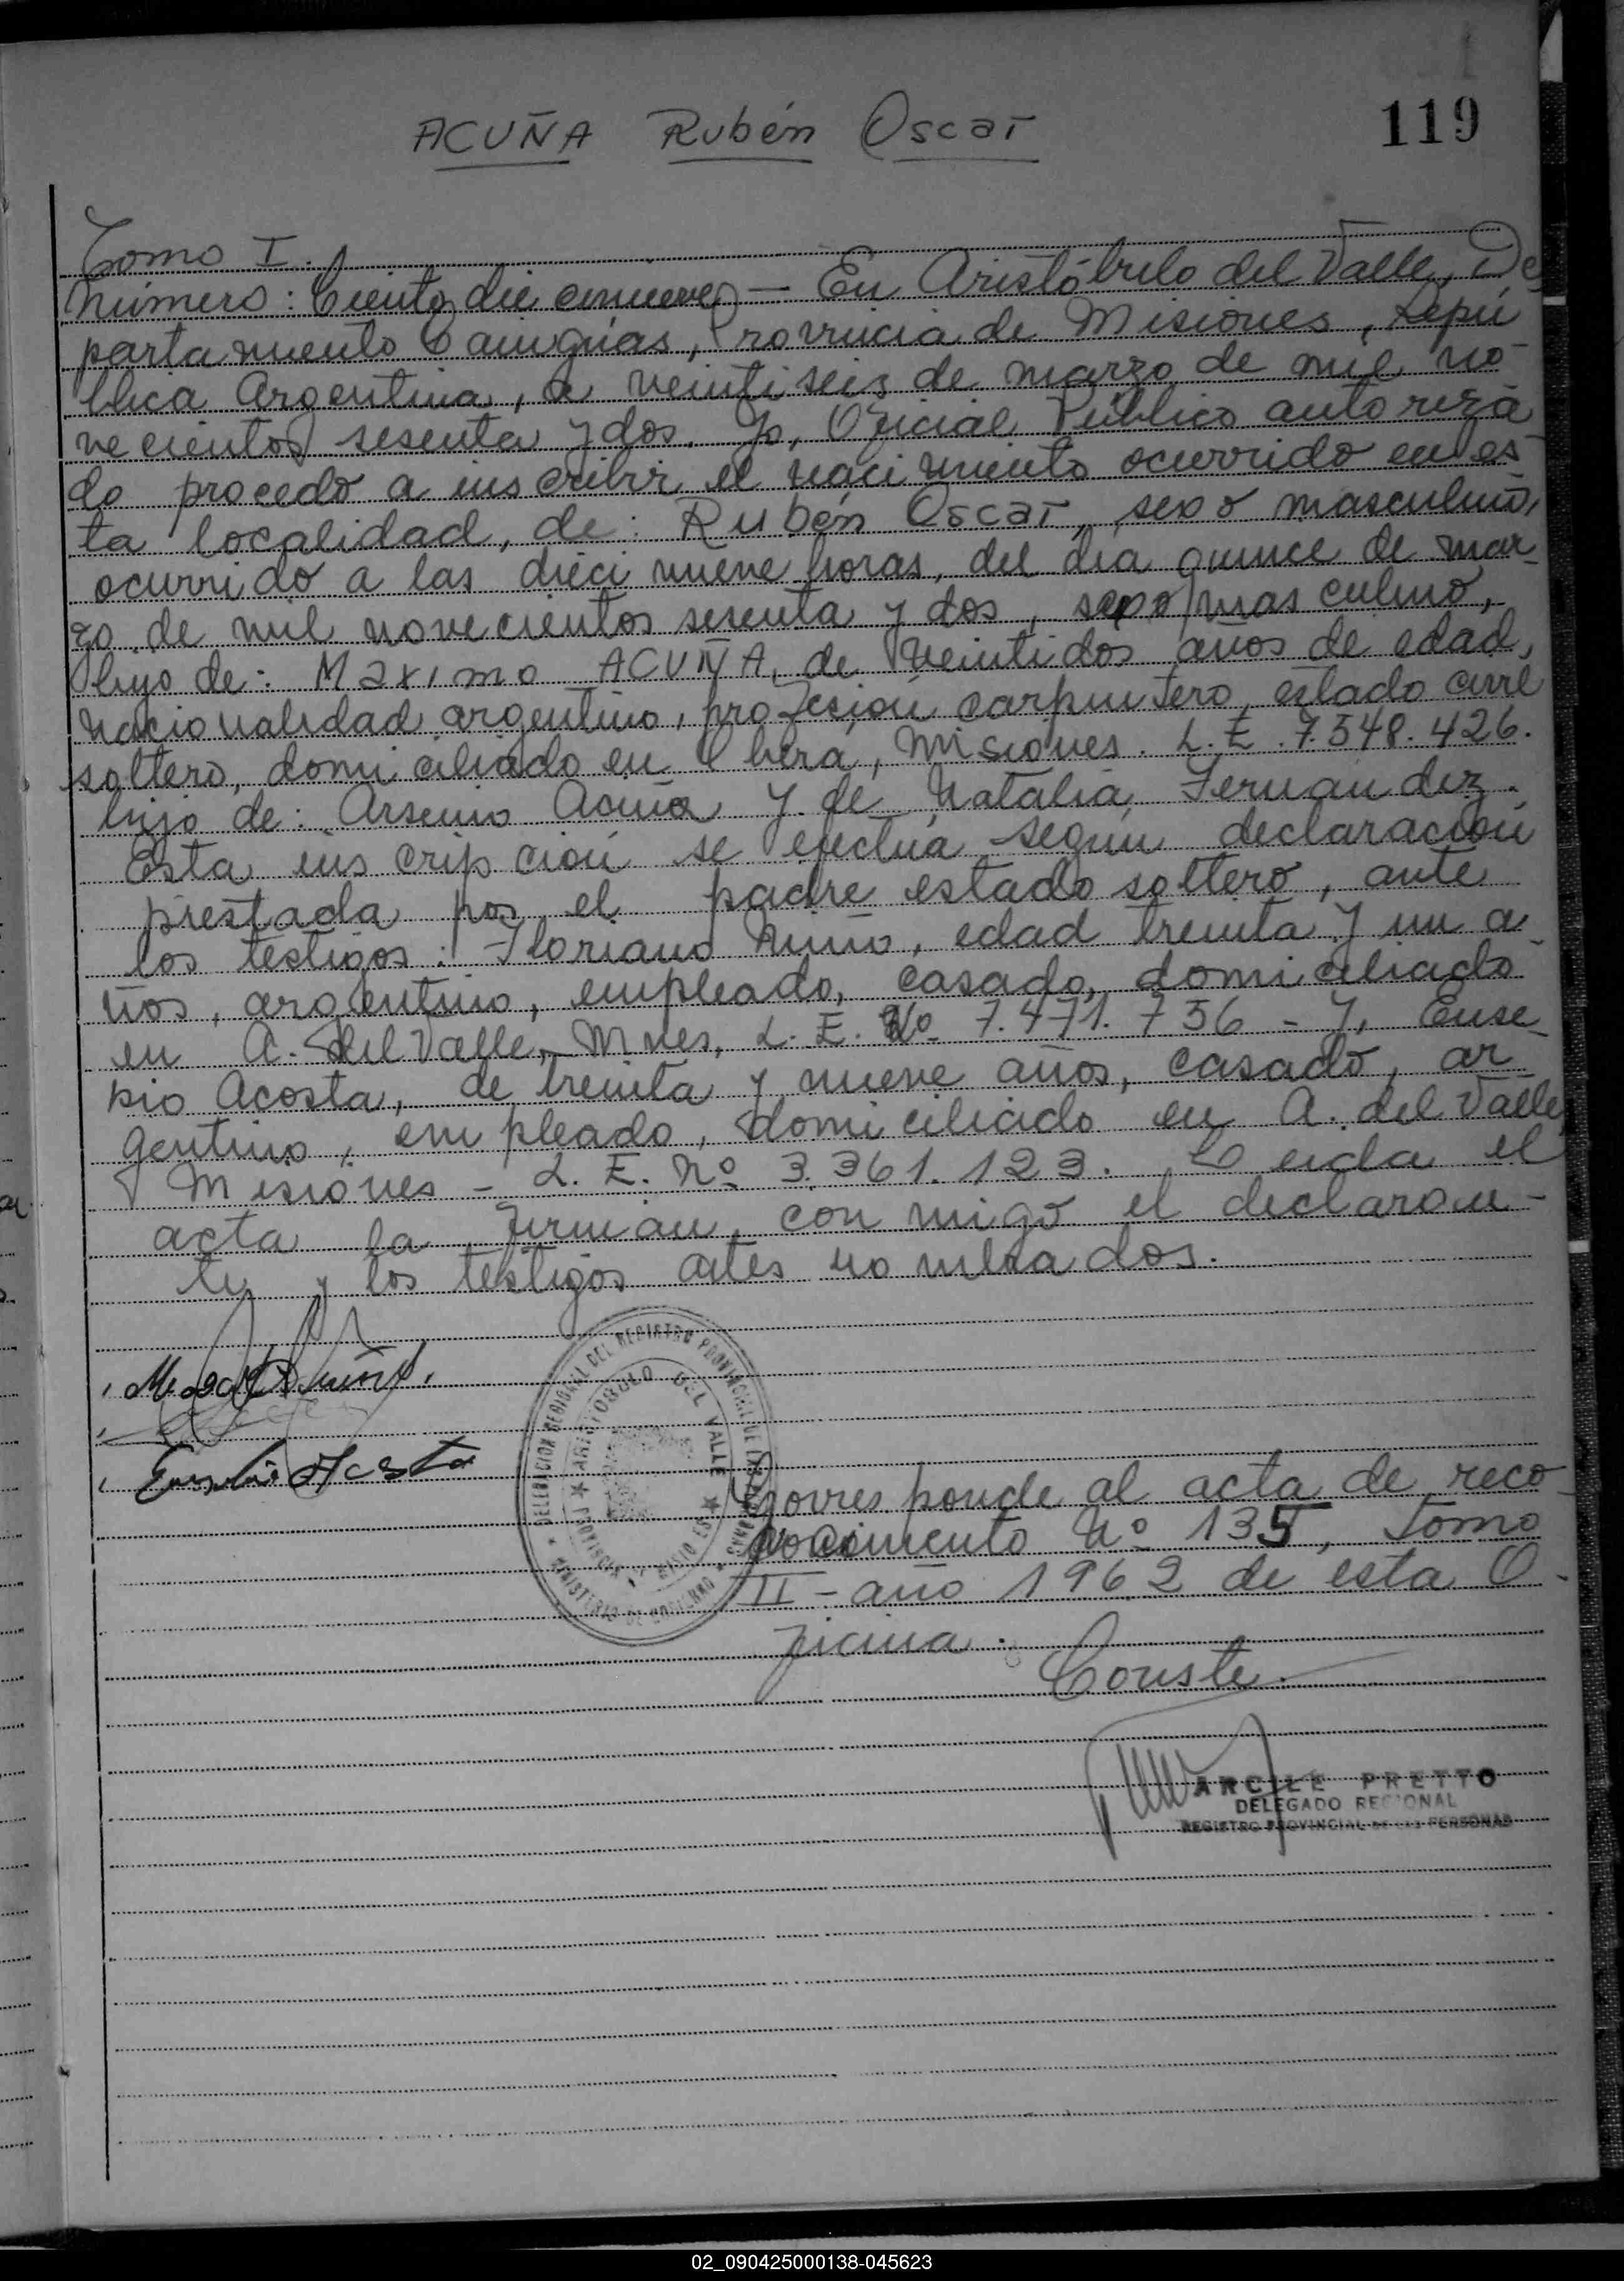 ACUÑA Rubén Oscar
119
Tomo I.
Número: Ciento diecinueve — En Aristóbulo del Valle, De
partamento Cainguás, Provincia de Misiones, Repú
blica Argentina, a veintiseis de marzo de mil no-
vecientos sesenta y dos. Yo, Oficial Público autoriza
do procedo a inscribir el nacimiento ocurrido en es-
ta localidad, de: Rubén Oscar, sexo masculino,
ocurrido a las dieci nueve horas, del dia quince de mar-
zo de mil novecientos sesenta y dos, sexo masculino,
hijo de: Maximo ACUÑA, de veintidos años de edad,
nacionalidad argentino, profesión carpintero, estado civil
soltero, domiciliado en Oberá, Misiones. L.E. 7.548.426.
hijo de: Arsenio Acuña y de Natalia Fernandez.
Esta inscripción se efectúa según declaración
prestada por el padre estado soltero, ante
los testigos: Floriano Nuño, edad treinta y un a-
ños, argentino, empleado, casado, domiciliado
en A. del Valle, Mnes, L.E. Nº 7.471.756 - y, Euse-
bio Acosta, de treinta y nueve años, casado, ar-
gentino, empleado, domiciliado en A. del Valle,
Misiones - L.E. Nº 3.361.123. Leida el
acta la firman con migo el declaran-
te y los testigos ates nombrados.
Eusebio Acosta
DELEGACION REGIONAL DEL REGISTRO PROVINCIAL DE LAS PERSONAS
MINISTERIO DE GOBIERNO
ARISTOBULO DEL VALLE
PROVINCIA MISIONES
Corresponde al acta de reco-
nocimiento Nº 135, Tomo
II - año 1962 de esta O-
ficina.
Conste.
ARCILE PRETTO
DELEGADO REGIONAL
REGISTRO PROVINCIAL DE LAS PERSONAS
02_090425000138-045623